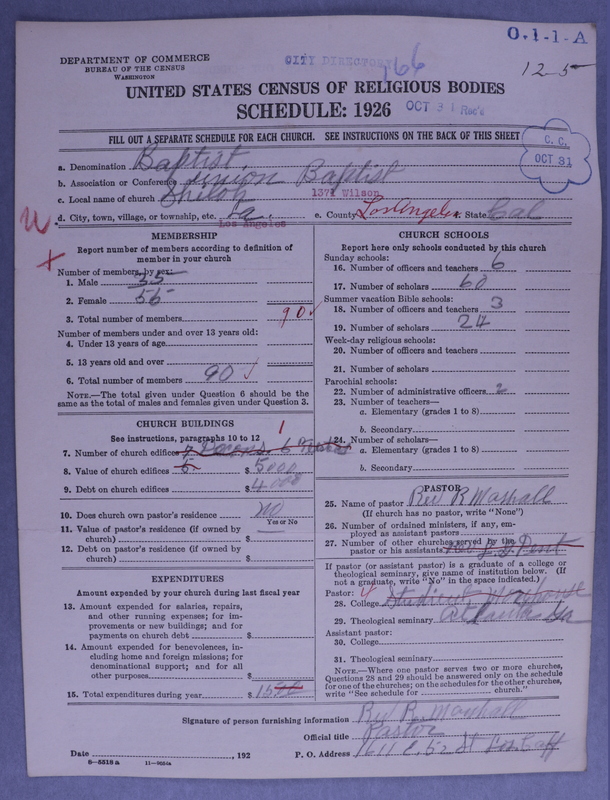 O.1-1-A
DEPARTMENT OF COMMERCE
BUREAU OF THE CENSUS
WASHINGTON
CITY DIRECTORY
166
12-5
UNITED STATES CENSUS OF RELIGIOUS BODIES
SCHEDULE: 1926
OCT 31 Rec'd
FILL OUT A SEPARATE SCHEDULE FOR EACH CHURCH. SEE INSTRUCTIONS ON THE BACK OF THIS SHEET
C. C.
OCT 31
a. Denomination Baptist
b. Association or Conference Union Baptist
c. Local name of church Shiloh 1371 Wilson
d. City, town, village, or township, etc. La. Los Angeles e. County Los Angeles f. State Cal
MEMBERSHIP
Report number of members according to definition of
member in your church
Number of members, by sex:
1. Male 35
2. Female 55
3. Total number of members 90
Number of members under and over 13 years old:
4. Under 13 years of age
5. 13 years old and over
6. Total number of members 90
NOTE.—The total given under Question 6 should be
same as the total of males and females given under Question 3.
CHURCH BUILDINGS
See instructions, paragraphs 10 to 12 1
7. Number of church edifices
8. Value of church edifices $ 5000
9. Debt on church edifices $ 4000
10. Does church own pastor's residence? no
Yes or No
11. Value of pastor's residence (if owned by
church) $
12. Debt on pastor's residence (if owned by
church) $
EXPENDITURES
Amount expended by your church during last fiscal year
13. Amount expended for salaries, repairs,
and other running expenses; for im-
provements or new buildings; and for
payments on church debt $
14. Amount expended for benevolences, in-
cluding home and foreign missions; for
denominational support; and for all
other purposes $
15. Total expenditures during year $
CHURCH SCHOOLS
Report here only schools conducted by this church
Sunday schools:
16. Number of officers and teachers 6
17. Number of scholars 60
Summer vacation Bible schools:
18. Number of officers and teachers 3
19. Number of scholars 24
Week-day religious schools:
20. Number of officers and teachers
21. Number of scholars
Parochial schools:
22. Number of administrative officers 2
23. Number of teachers—
a. Elementary (grades 1 to 8)
b. Secondary
24. Number of scholars—
a. Elementary (grades 1 to 8)
b. Secondary
PASTOR
25. Name of pastor Rev R Marshall
(If church has no pastor, write "None")
26. Number of ordained ministers, if any, em-
ployed as assistant pastors
27. Number of other churches served by the
pastor or his assistants
If pastor (or assistant pastor) is a graduate of a college or
theological seminary, give name of institution below. (If
not a graduate, write "No" in the space indicated.)
Pastor:
28. College
29. Theological seminary Atlanta Ga
Assistant pastor:
30. College
31. Theological seminary
NOTE.—Where one pastor serves two or more churches,
Questions 28 and 29 should be answered only on the schedule
for one of the churches; on the schedules for the other churches,
write "See schedule for church."
Signature of person furnishing information Rev R Marshall
Official title Pastor
Date , 192 P. O. Address 1611 E. 52 St
8—5518 a